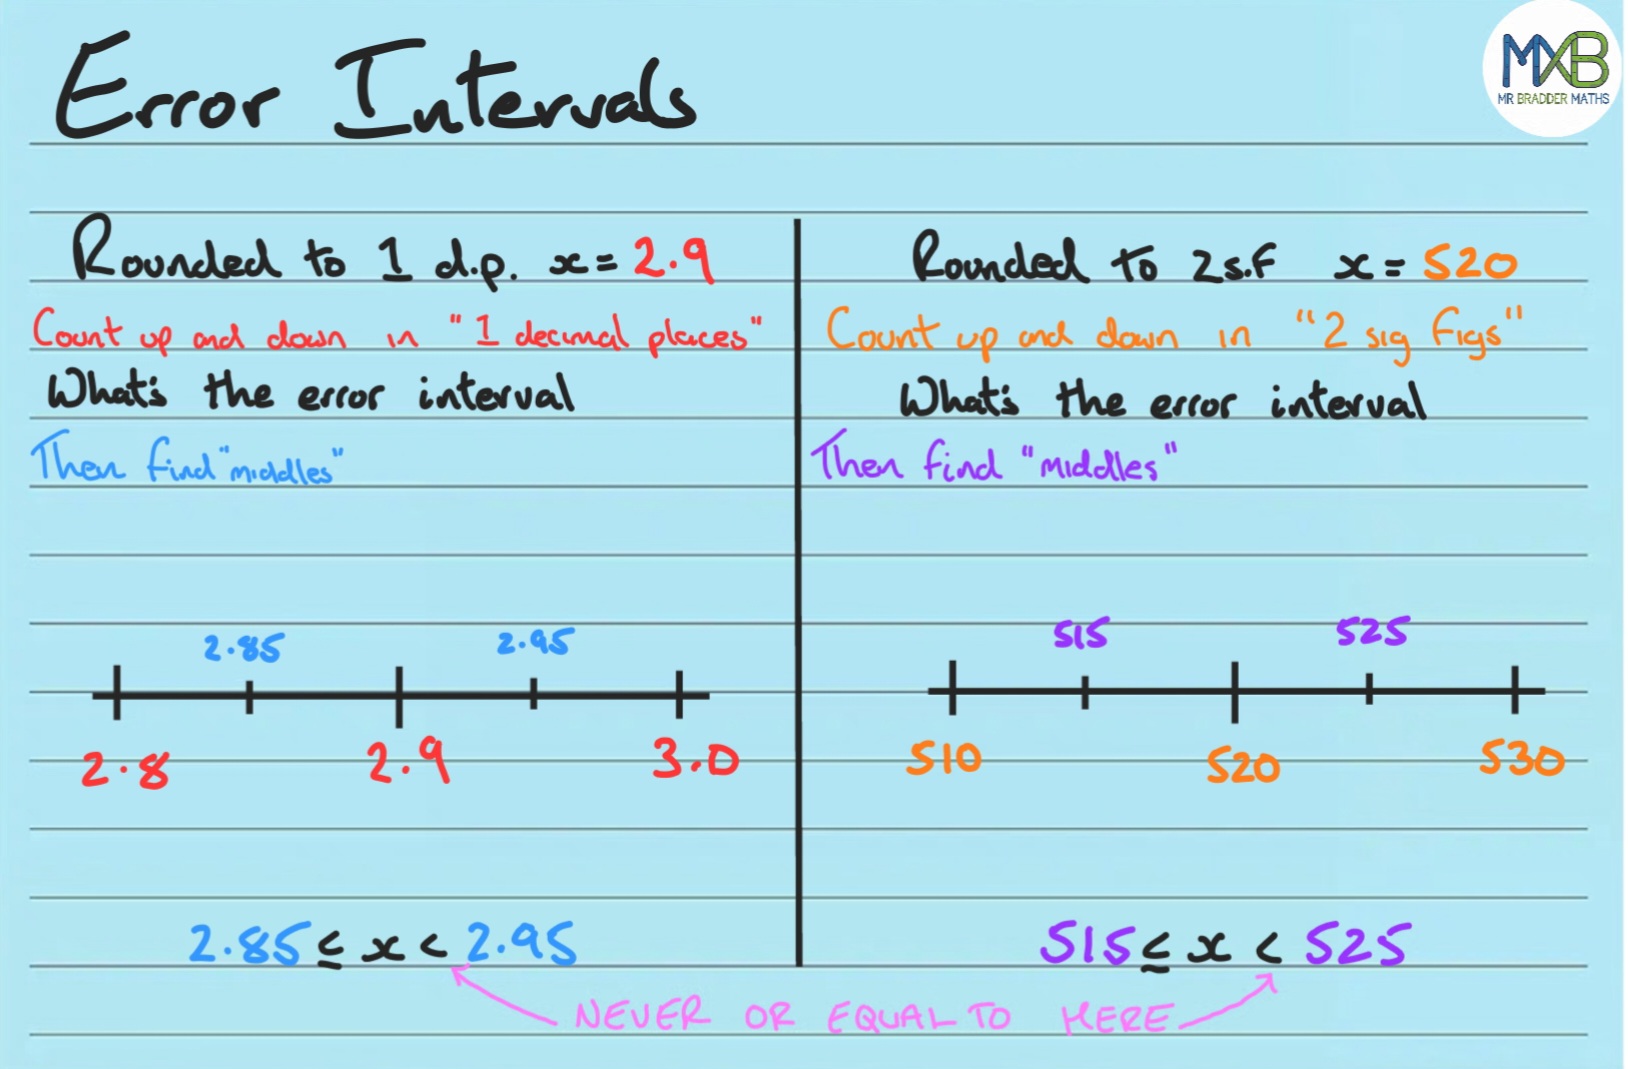 Error Intervals
MXB
MR BRADDER MATHS
Rounded to 1 d.p. x = 2.9
Count up and down in "1 decimal places"
What's the error interval
Then find "middles"
2.85 2.95
2.8 2.9 3.0
2.85 ≤ x < 2.95
Rounded to 2 s.f x = 520
Count up and down in "2 sig figs"
What's the error interval
Then find "middles"
515 525
510 520 530
515 ≤ x < 525
NEVER OR EQUAL TO HERE